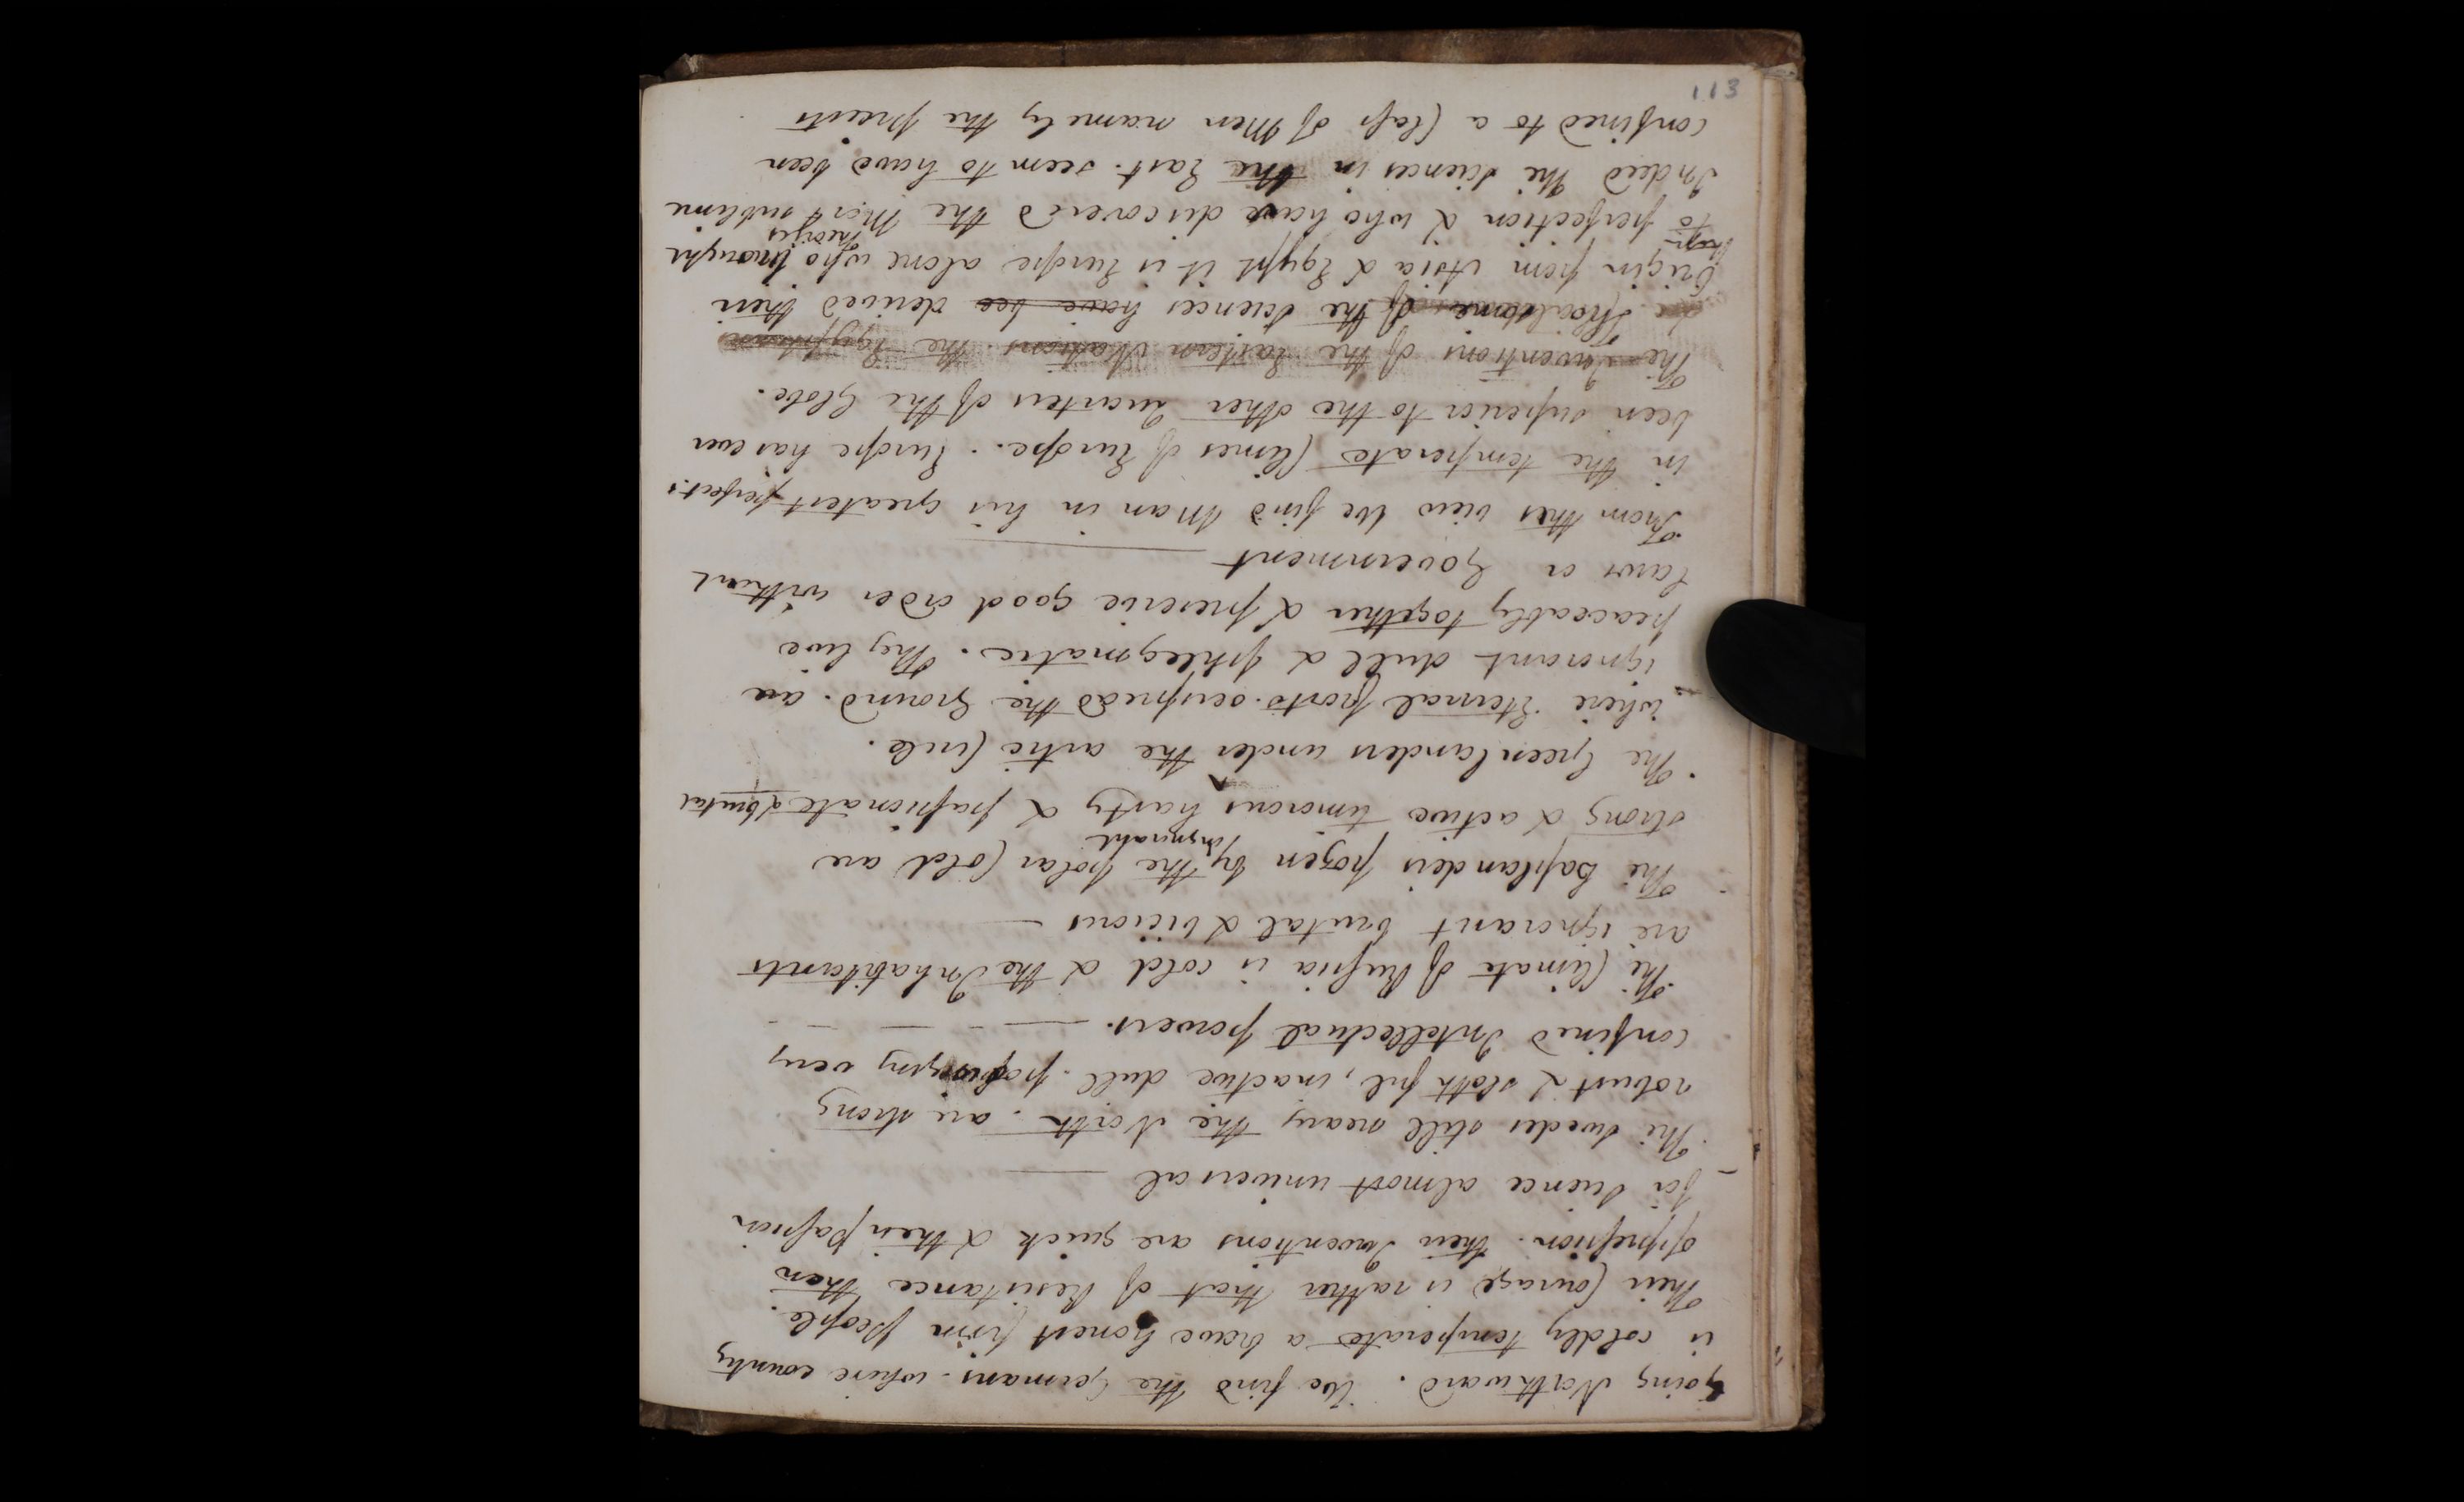 113
Going Northward. We find the Germans. whose country
is coldly temperate a brave honest firm People.
Their Courage is rather that of Resistance then
oppression. their Inventions are quick & their Passion
for Science almost universal
The Swedes still nearer the North. are strong
robust & slothful, inactive dull. possessing very
confined Intellectual powers.
The Climate of Russia is cold & the Inhabitants
are ignorant brutal & vicious
The Laplanders frozen by the polar Cold are
strong & active timorous hasty & passionate & brutal
ignorant
The Greenlanders under the artic Circle.
where Eternal frosts overspread the Ground. are
ignorant dull & phlegmatic. They live
peaceably together & preserve good order without
Laws or Government
From this view We find Man in his greatest perfect:
in the temperate Climes of Europe. Europe has ever
been superior to the other Quarters of the Globe.
The Inventions of the Eastern Nations. the Egyptians
Though some of the Sciences have bee derived their
Origin from Asia & Egypt it is Europe alone who brought
to perfection & who have discovered the Most sublime
Theories
Indeed The Sciences in the East. seem to have been
confined to a Class of Men namely the preists